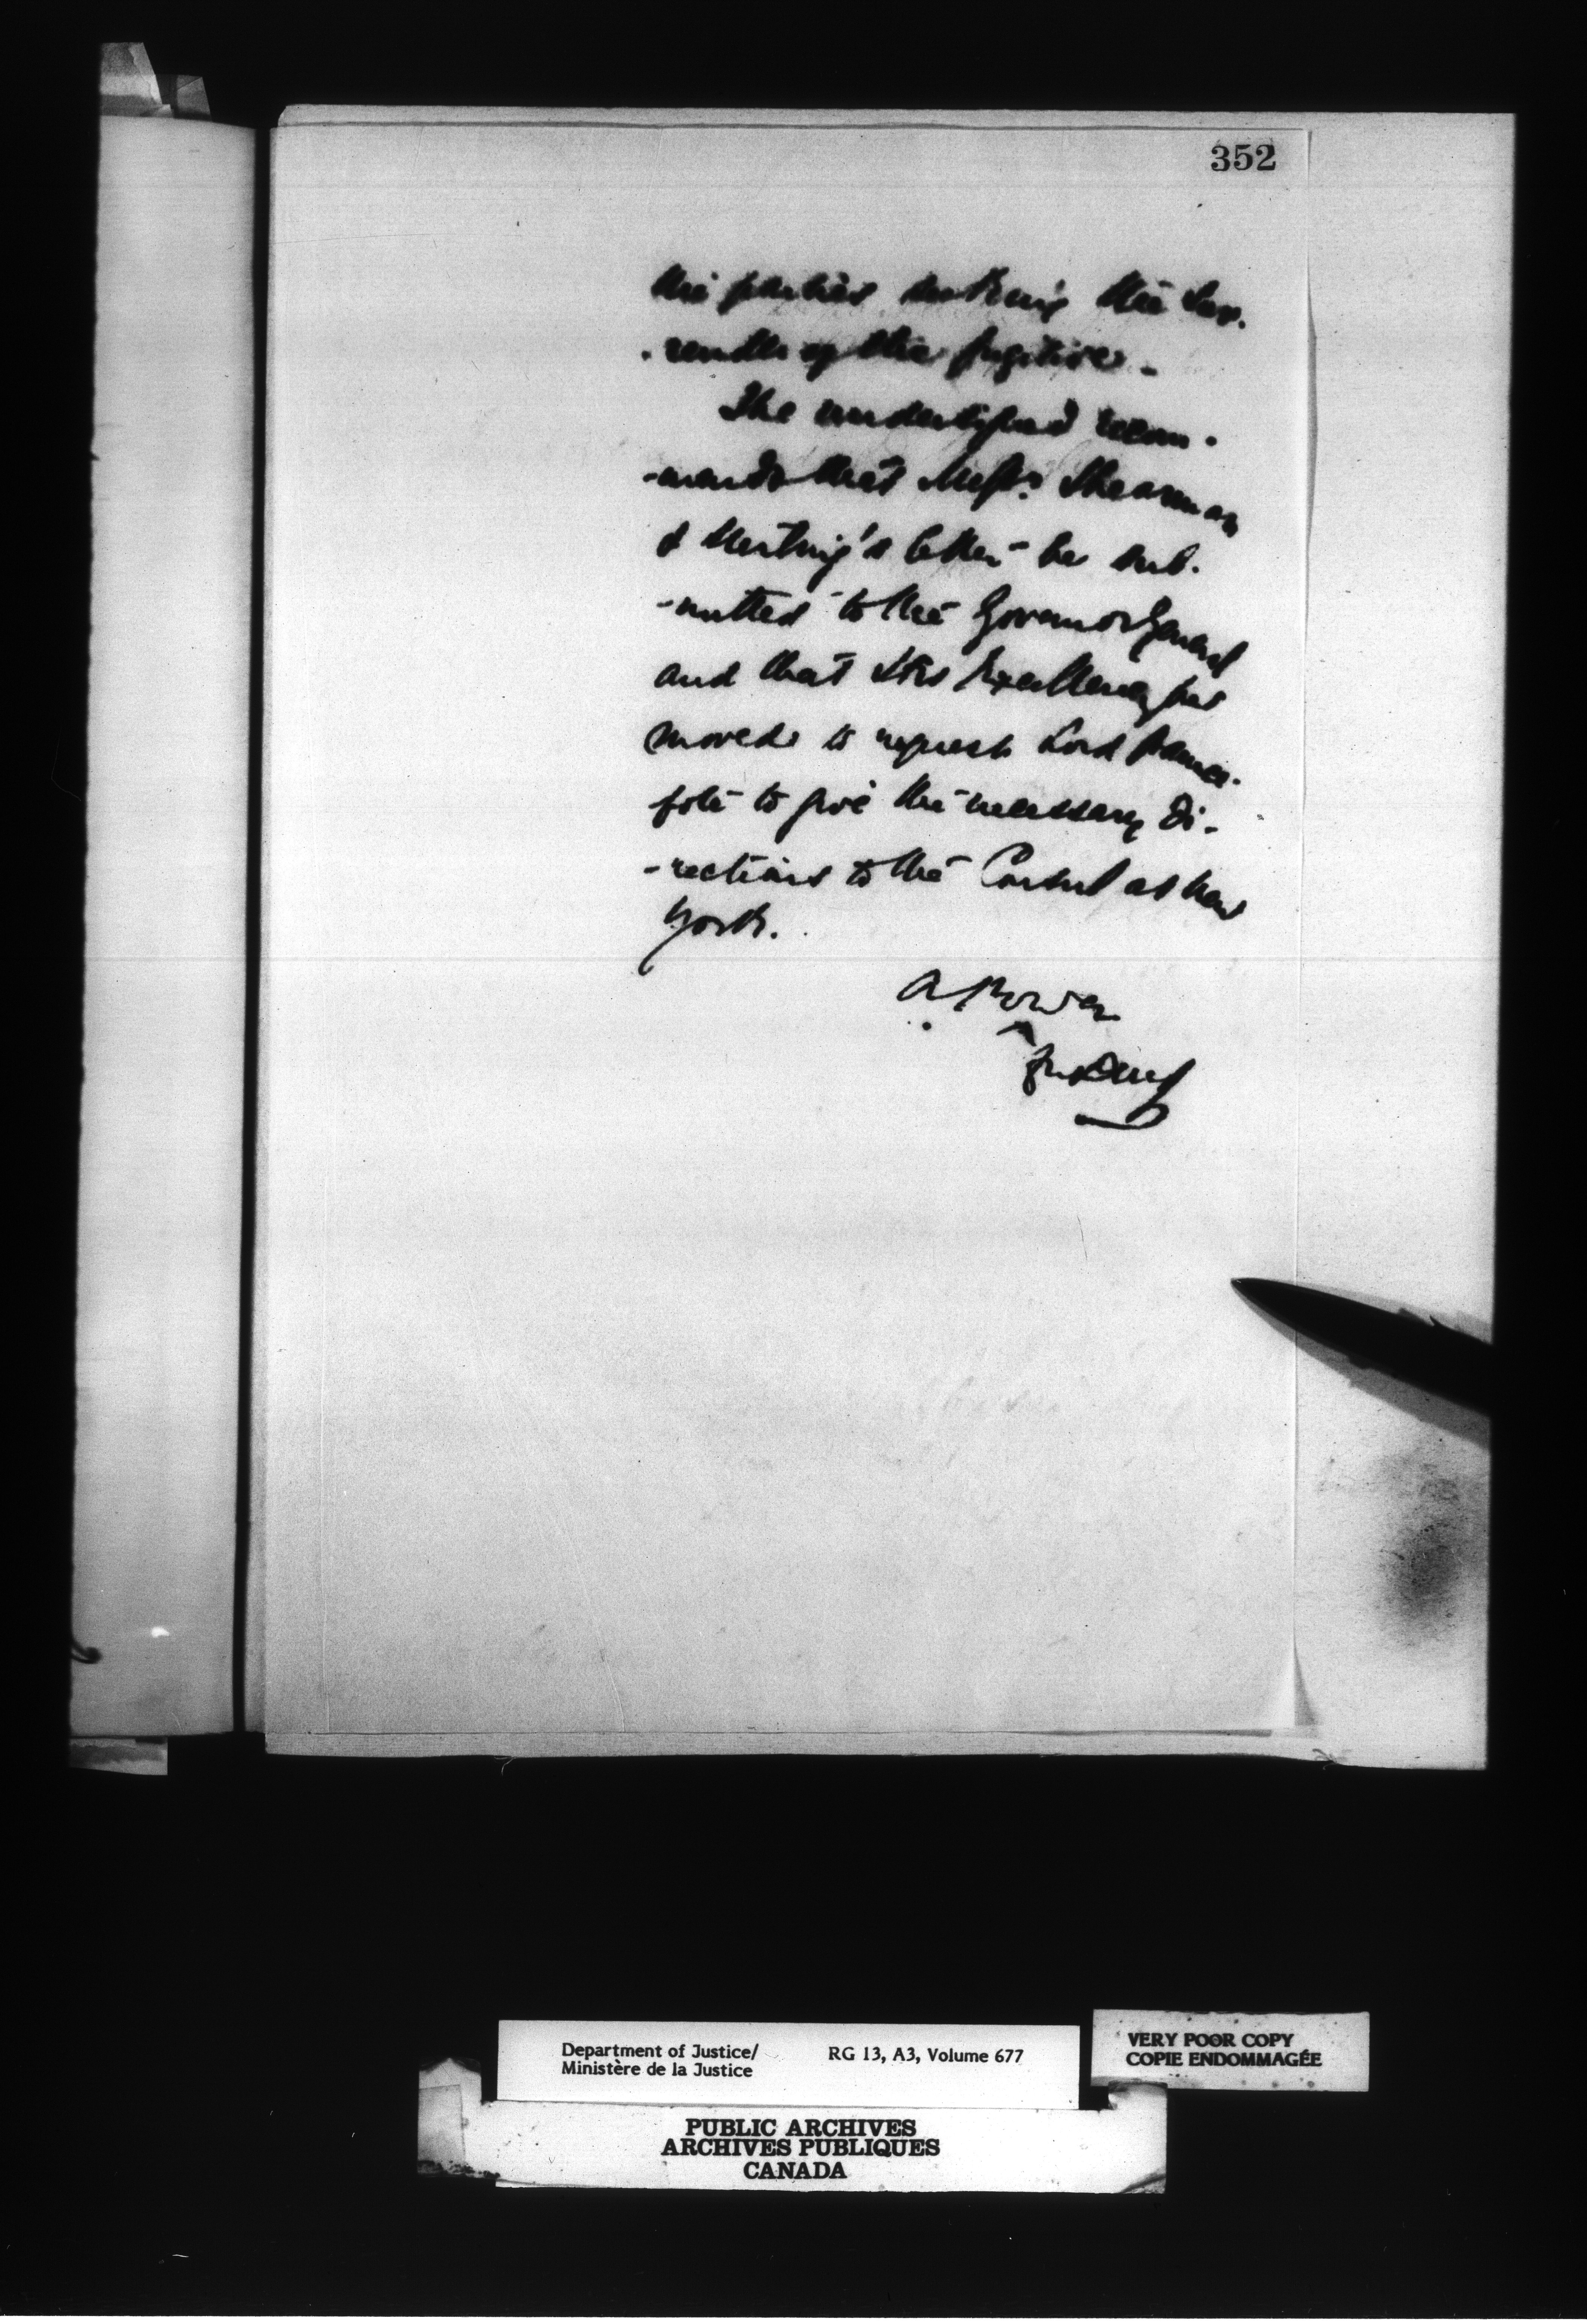 352
the parties seeking the sur-
-render of the fugitive.
The undersigned recom-
-mends that Messrs. Shearman
& Sterling's letter be sub-
-mitted to the Governor General
and that His Excellency be
moved to request Lord Paunce-
fote to give the necessary di-
-rections to the Consul at New
York.
A Power
for DMJ
Department of Justice/ RG 13, A3, Volume 677
Ministère de la Justice
VERY POOR COPY
COPIE ENDOMMAGÉE
PUBLIC ARCHIVES
ARCHIVES PUBLIQUES
CANADA